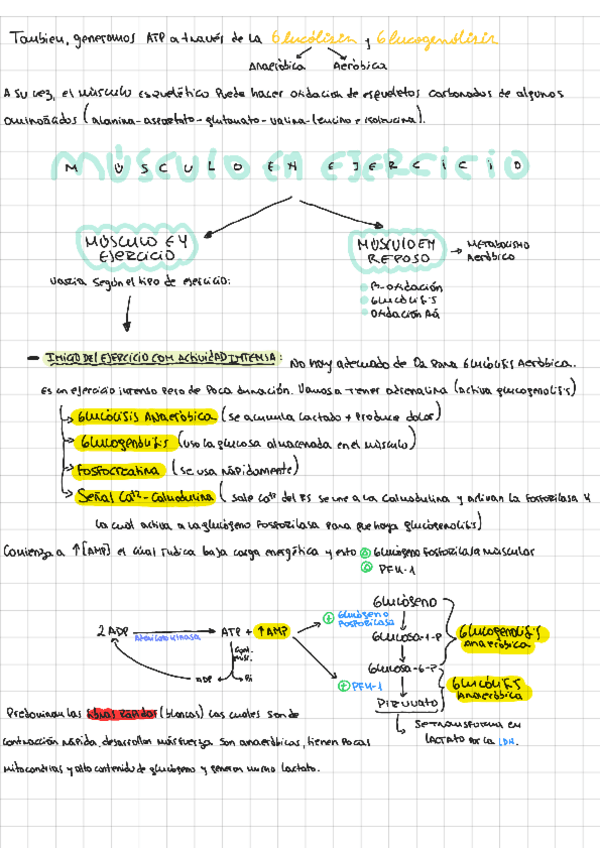 Tambien, generamos ATP a través de la Glucólisis y Glucogenólisis
Anaeróbica Aeróbica
A su vez, el músculo esquelético puede hacer oxidacion de esqueletos carbonados de algunos
aminoácidos (alanina - aspartato - glutamato - valina - leucina e isoleucina).
MÚSCULO EN EJERCICIO
MÚSCULO EN
EJERCICIO
MÚSCULO EN
REPOSO
→ METABOLISMO
Aeróbico
Varia según el tipo de ejercicio:
B-oxidación
Glucólisis
Oxidación Aá
- INICIO DEL EJERCICIO COM ACTIVIDAD INTENSA: No hay adecuado de O2 para Glucólisis Aeróbica.
Es un ejercicio intenso pero de poca duración. Vamos a tener adrenalina (activa glucogenolisis)
Glucólisis Anaeróbica (se acumula lactado + produce dolor)
Glucogenolisis (uso la glucosa almacenada en el músculo)
Fosfocreatina (se usa rápidamente)
Señal Ca+2 - Calmodulina (sale Ca+2 del RS se une a la Calmodulina y activan la fosforilasa K
la cual activa a la glucógeno fosforilasa para que haya glucogenolisis)
Comienza a ↑[AMP] el cual indica baja carga energética y esto + Glucógeno fosforilasa muscular
+ PFK-1
2 ADP → ATP + ↑AMP
Adenilato kinasa
Cont.
musc.
ADP Pi
+ Glucógeno
fosforilasa
+ PFK-1
Glucógeno
Glucosa-1-P
Glucosa-6-P
Piruvato
Glucogenolisis
Anaeróbica
Glucólisis
Anaeróbica
Se transforma en
lactato por la LDH.
Predominan las fibras rápidas (blancas) las cuales son de
contracción rápida, desarrollan más fuerza son anaeróbicas, tienen pocas
mitocondrias y alto contenido de glucógeno y generan mucho lactato.